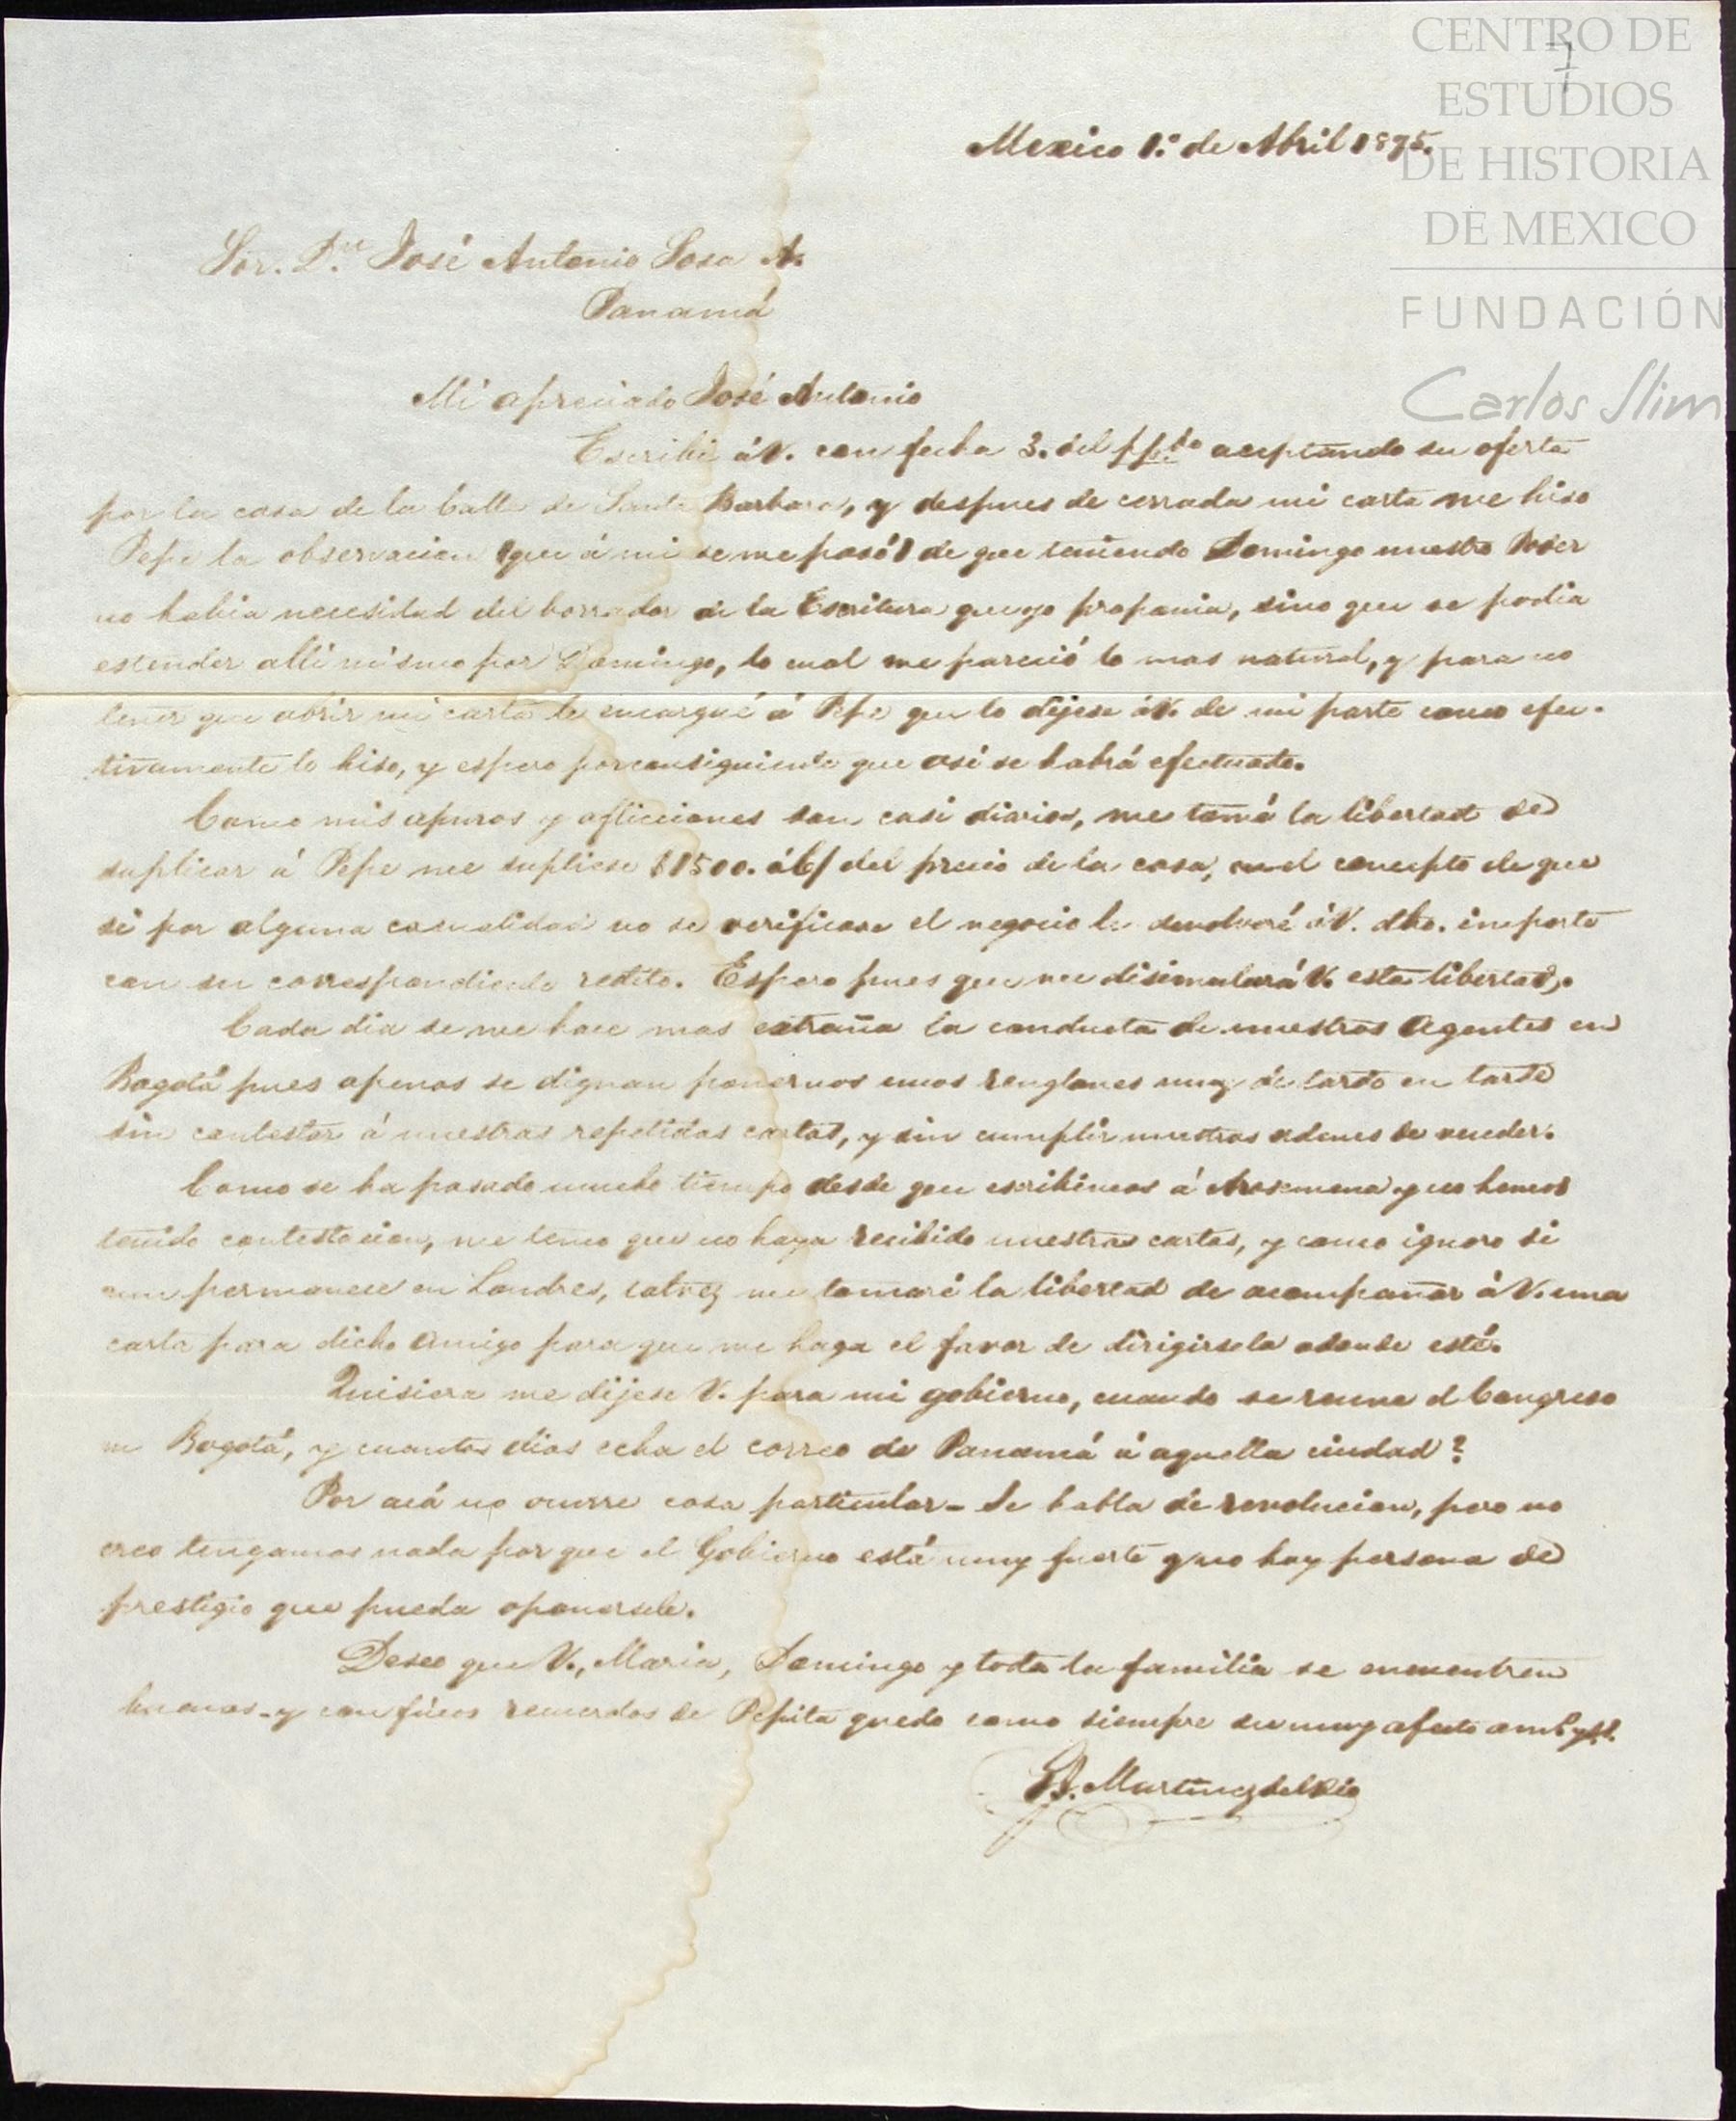 CENTRO DE
ESTUDIOS
DE HISTORIA
DE MEXICO
FUNDACIÓN
Carlos Slim
7
Mexico 1.º de Abril 1875.
Sor. Dn. José Antonio Sosa A.
Panamá
Mi apreciado José Antonio
Escribí á V. con fecha 3. del ppdo. aceptando su oferta
por la casa de la Calle de Santa Barbara, y despues de cerrada mi carta me hiso
Pepe la observacion (que á mi se me pasó) de que teniendo Domingo nuestro Poder
no habia necesidad del borrador de la Escritura que yo proponia, sino que se podia
estender alli mismo por Domingo, lo cual me pareció lo mas natural, y para no
tener que abrir mi carta le encargué á Pepe que lo dijese á V. de mi parte como efec-
tivamente lo hiso, y espero por consiguiente que así se habrá efectuado.
Como mis apuros y aflicciones son casi diarios, me tomé la libertad de
suplicar á Pepe me supliese $1500. á c/ del precio de la casa, en el concepto de que
si por alguna casualidad no se verificase el negocio le devolveré á V. dho. importe
con su correspondiente redito. Espero pues que me disimulará V. esta libertad.
Cada dia se me hace mas estraña la conducta de nuestros Agentes en
Bogotá pues apenas se dignan ponernos unos renglones muy de tarde en tarde
sin contestar á nuestras repetidas cartas, y sin cumplir nuestras ordenes de vender.
Como se ha pasado mucho tiempo desde que escribimos á Arosemena y no hemos
tenido contestacion, me temo que no haya recibido nuestras cartas, y como ignoro si
aun permanese en Londres, talvez me tomaré la libertad de acompañar á V. una
carta para dicho amigo para que me haga el favor de dirigirsela adonde esté.
Quisiera me dijese V. para mi gobierno, cuando se reune el Congreso
en Bogotá, y cuantos dias echa el correo de Panamá á aquella ciudad?
Por acá no ocurre cosa particular - Se habla de revolucion, pero no
creo tengamos nada por que el Gobierno está muy fuerte y no hay persona de
prestigio que pueda oponersele.
Deseo que V., Maria, Domingo y toda la familia se encuentren
buenos - y con finos recuerdos de Pepita quedo como siempre su muy afecto amº. y S.S.
Martinez del Rio